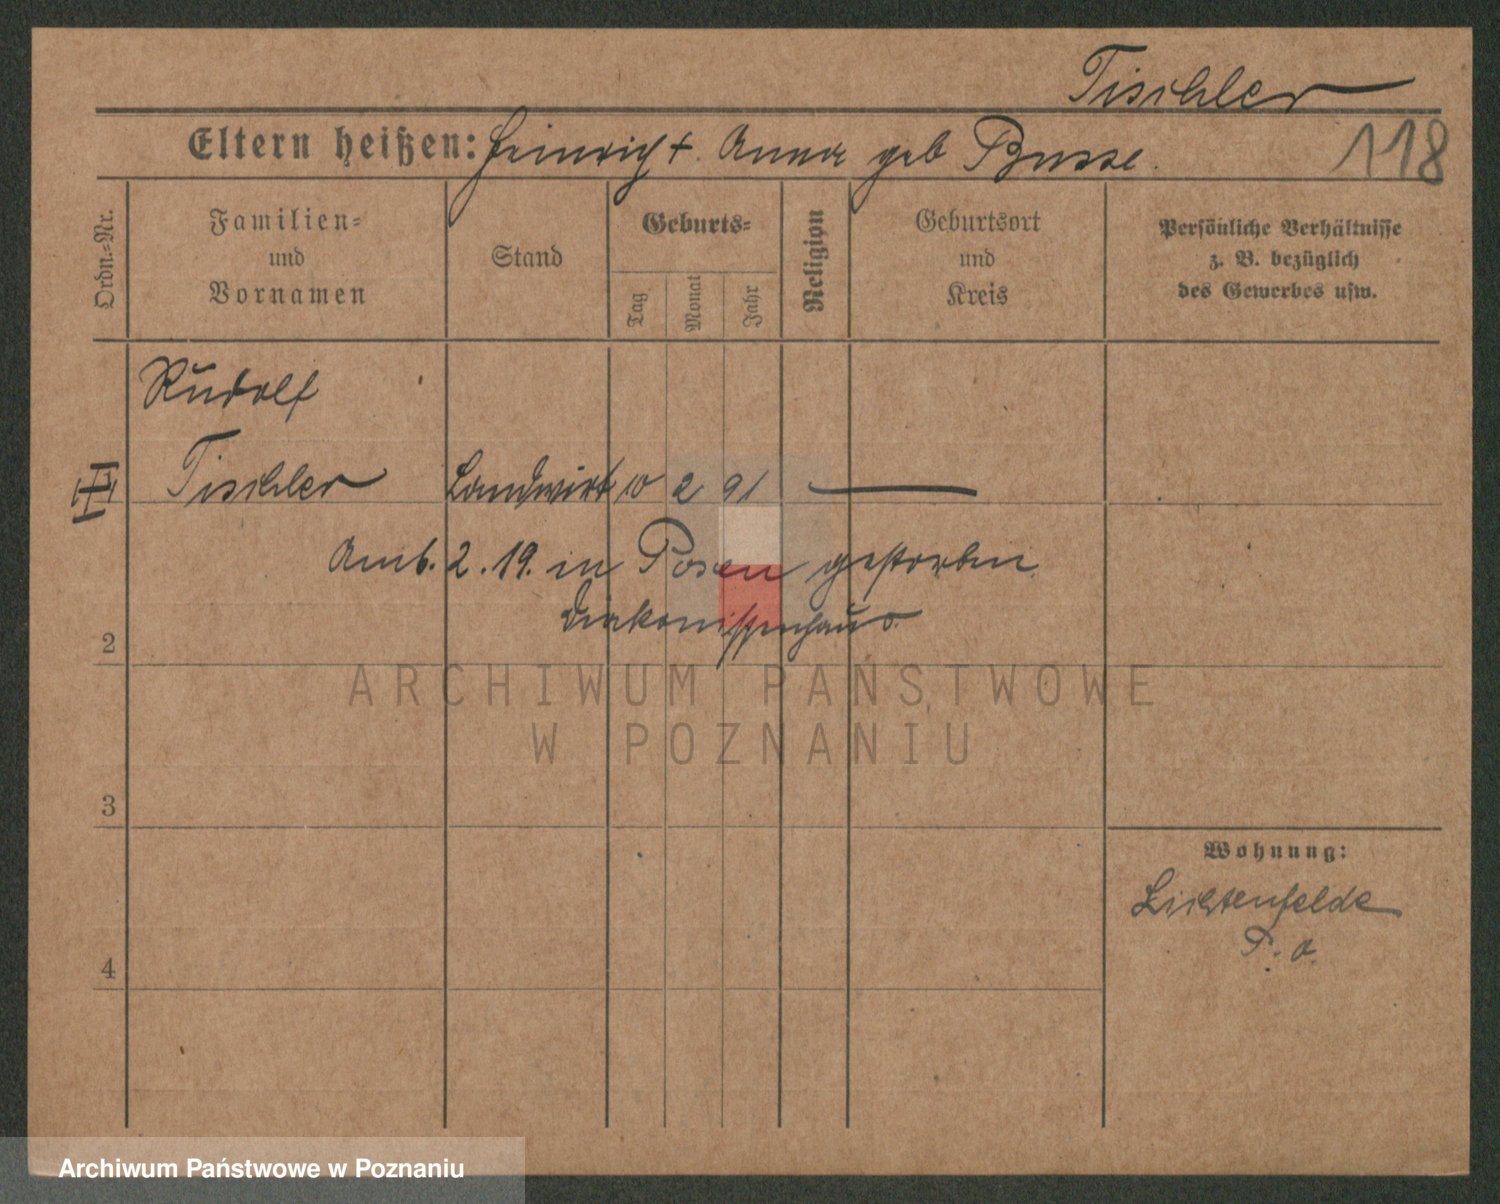 Tischler
Eltern heißen: Heinrich †. Anna geb Busse.
118
Ordn.-Nr.
Familien-
und
Vornamen
Stand
Geburts-
Tag
Monat
Jahr
Religion
Geburtsort
und
Kreis
Persönliche Verhältnisse
z. B. bezüglich
des Gewerbes usw.
Rudolf
Tischler Landwirt 10 2 91
Am 6. 2. 19. in Posen gestorben
Diakonissenhaus.
2
ARCHIWUM PAŃSTWOWE
W POZNANIU
3
Wohnung:
Lichtenfelde
P. O.
4
Archiwum Państwowe w Poznaniu